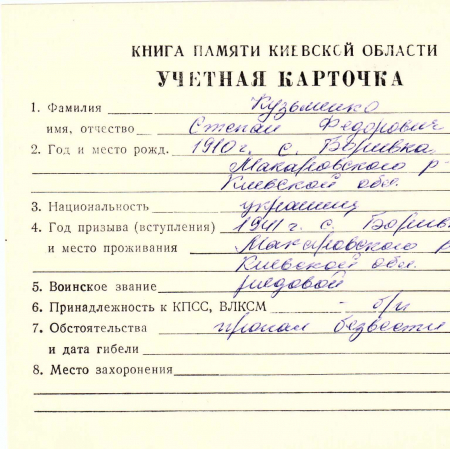 КНИГА ПАМЯТИ КИЕВСКОЙ ОБЛАСТИ
УЧЕТНАЯ КАРТОЧКА
1. Фамилия Кузьменко
имя, отчество Степан Федорович
2. Год и место рожд. 1910 г. с. Боривка
Макаровского р-
Киевской обл.
3. Национальность украинец
4. Год призыва (вступления) 1941 г. с. Борив
и место проживания Макаровского р
Киевской обл.
5. Воинское звание рядовой
6. Принадлежность к КПСС, ВЛКСМ - б/п
7. Обстоятельства пропал безвести
и дата гибели
8. Место захоронения